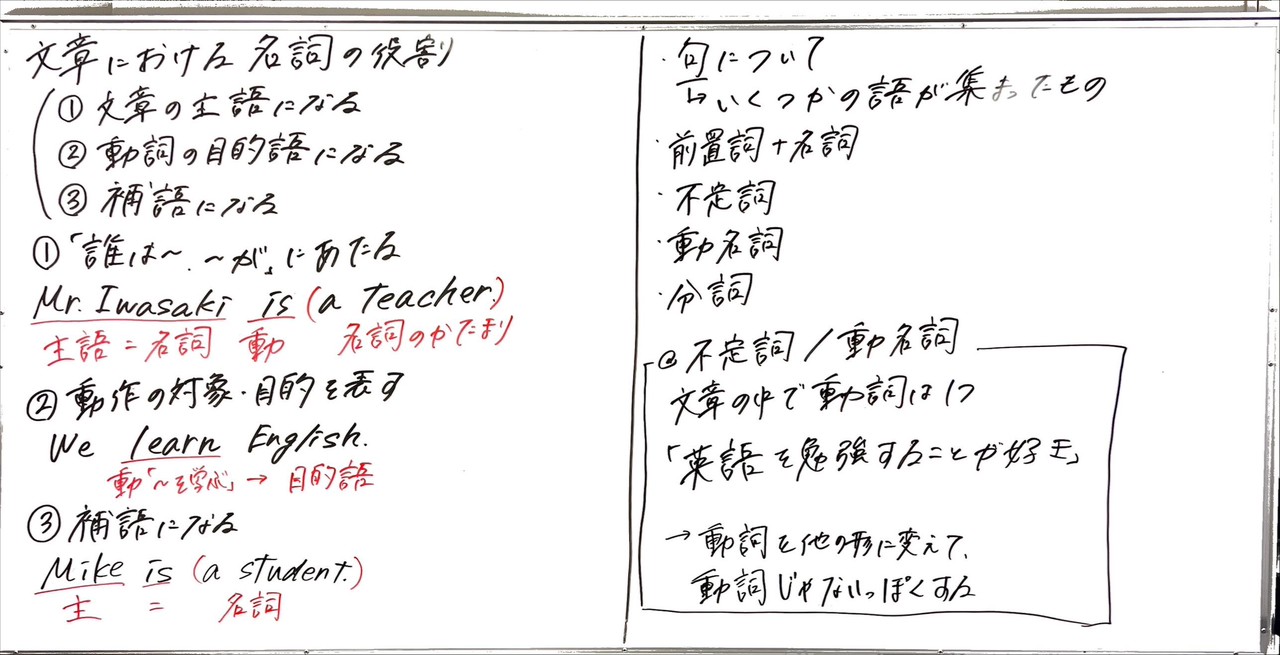 文章における名詞の役割
① 文章の主語になる
② 動詞の目的語になる
③ 補語になる
①「誰は〜、〜が」にあたる
Mr. Iwasaki is (a teacher.)
主語=名詞 動 名詞のかたまり
②動作の対象・目的を表す
We learn English.
動「〜を学ぶ」→ 目的語
③補語になる
Mike is (a student.)
主 = 名詞
・句について
↳いくつかの語が集まったもの
・前置詞+名詞
・不定詞
・動名詞
・分詞
◎不定詞/動名詞
文章の中で動詞は1つ
「英語を勉強することが好き」
→動詞を他の形に変えて、
動詞じゃないっぽくする